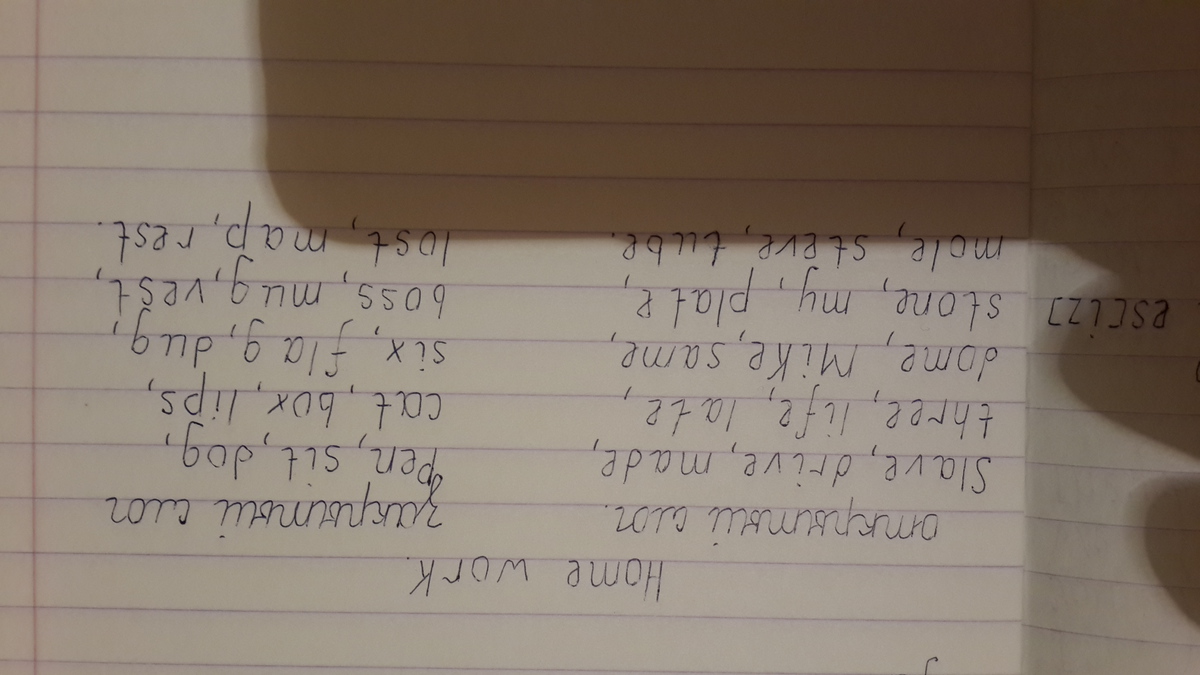 Home work.
открытый слог. закрытый слог
Slave, drive, made, pen, sit, dog,
three, life, late, cat, box, lips,
dome, Mike, same, six, flag, dug,
es[iz] stone, my, plate, boss, mug, vest,
mole, steve, tube. lost, map, rest.